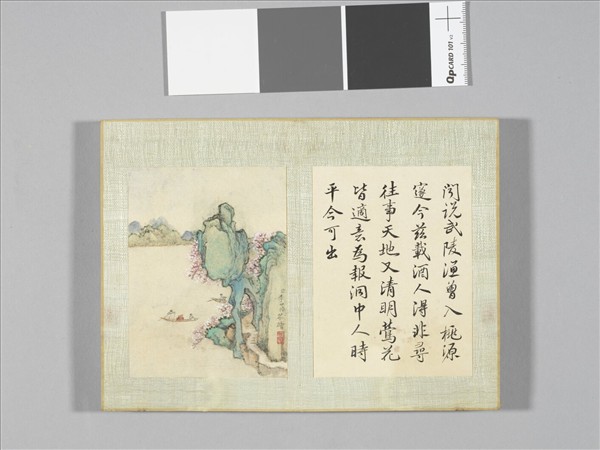 QPCARD 101 v2
聞説武陵漁曾入桃源
邃今茲載酒人得非尋
往事天地又清明鶯花
皆適意為報洞中人時
平今可出